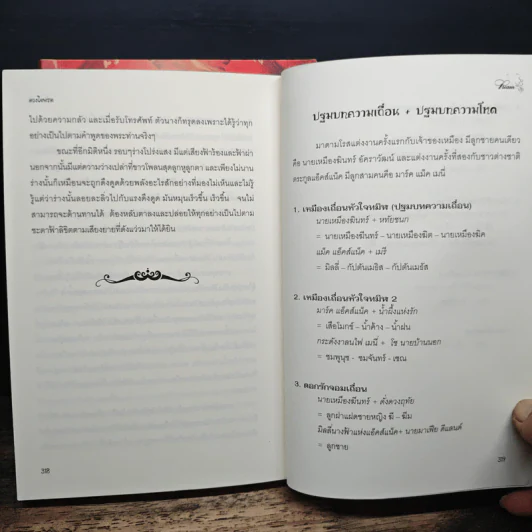 ดวงใจพ่อ
ไปด้วยความกลัว และเมื่อรับโทรศัพท์ ตัวนางก็ทรุดลงเพราะได้รู้ว่าทุก
อย่างเป็นไปตามคำพูดของพระท่านจริงๆ
ขณะที่อีกมิติหนึ่ง รอบๆร่างโปร่งแสง มีแต่เสียงฟ้าร้องและฟ้าผ่า
นอกจากนั้นมีแต่ความว่างเปล่าที่ขาวโพลนสุดลูกหูลูกตา และเพียงไม่นาน
ร่างนั้นก็เหมือนจะถูกดึงดูดด้วยพลังอะไรสักอย่างที่มองไม่เห็นและไม่รู้
รู้แต่ว่าร่างนั้นลอยละลิ่วไปกับแรงดึงดูด มันหมุนเร็วขึ้น เร็วขึ้น จนไม่
สามารถจะต้านทานได้ ต้องหลับตาลงและปล่อยให้ทุกอย่างเป็นไปตาม
ชะตาฟ้าลิขิตตามเสียงยายที่ดังแว่วมาให้ได้ยิน
318
ปฐมบทความเถื่อน + ปฐมบทความโหด
มาดามโรสแต่งงานครั้งแรกกับเจ้าของเหมือง มีลูกชายคนเดียว
คือ นายเหมืองฆินทร์ อัคราวัฒน์ และแต่งงานครั้งที่สองกับชาวต่างชาติ
ตระกูลแอ๊คส์แน็ค มีลูกสามคนคือ มาร์ค แม็ค เมนี่
1. เหมืองเถื่อนหัวใจทมิฬ (ปฐมบทความเถื่อน)
นายเหมืองฆินทร์ + หทัยชนก
= นายเหมืองฆินทร์ - นายเหมืองฆิต - นายเหมืองฆิค
แม็ค แอ๊คส์แน็ค + เมรี
= มิลลี่ - กัปตันเมธิส - กัปตันเมธัส
2. เหมืองเถื่อนหัวใจทมิฬ 2
มาร์ค แอ๊คส์แน็ค + น้ำผึ้งแห่งรัก
= เสือโมกข์ - น้ำค้าง - น้ำฝน
กระดังงาลนไฟ เมนี่ + โช นายบ้านนอก
= ชมพูนุช - ชมจันทร์ - เชณ
3. ดอกรักจอมเถื่อน
นายเหมืองฆินทร์ + ดังดวงฤทัย
= ลูกฝาแฝดชายหญิง ฆี - ฆีม
มิลลี่นางฟ้าแห่งแอ๊คส์แน็ค+ นายมาเฟีย ดีแลนด์
= ลูกชาย
319